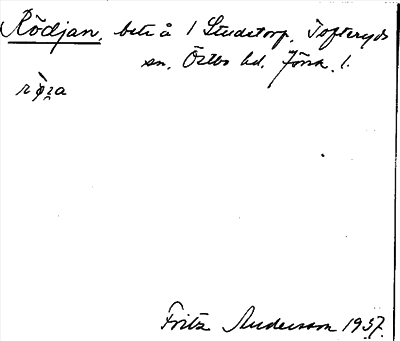 Rödjan, bete å 1 Studetorp, Tofteryds
sn, Östbo hd, Jönk. l.
Fritz Andersson 1937.